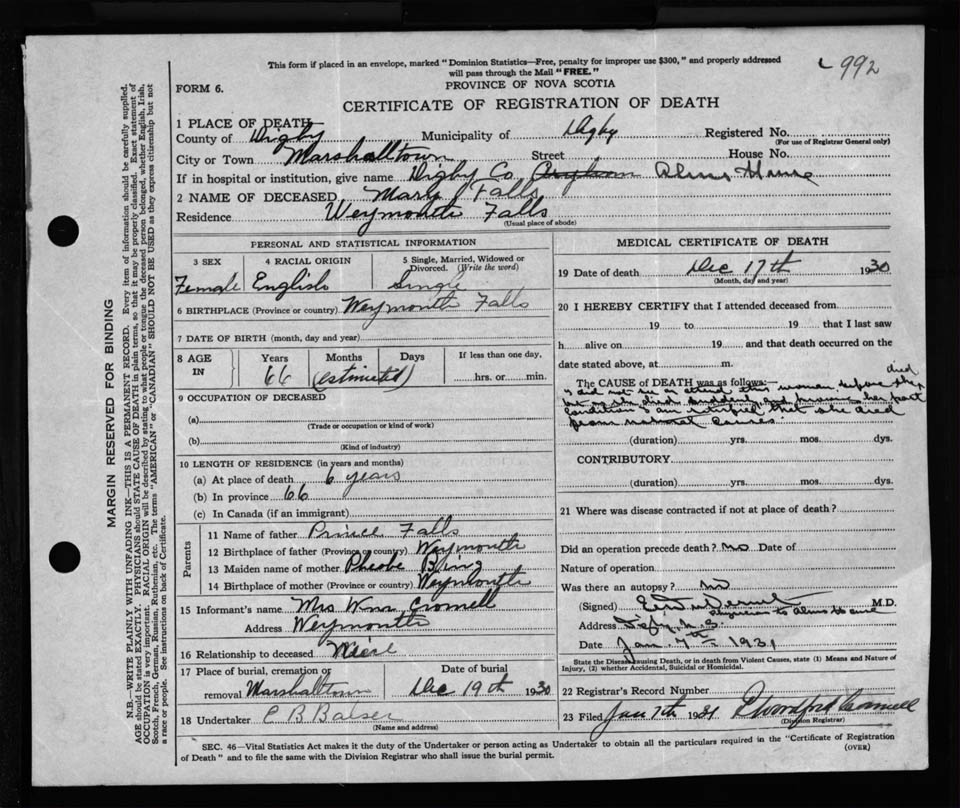 This form if placed in an envelope, marked "Dominion Statistics—Free, penalty for improper use $300," and properly addressed
will pass through the Mail "FREE."
992
PROVINCE OF NOVA SCOTIA
FORM 6.
CERTIFICATE OF REGISTRATION OF DEATH
1 PLACE OF DEATH
County of Digby Municipality of Digby Registered No.
(For use of Registrar General only)
City or Town Marshalltown Street House No.
If in hospital or institution, give name Digby Co. Asylum Alms House
2 NAME OF DECEASED Mary Falls
Residence Weymouth Falls
(Usual place of abode)
PERSONAL AND STATISTICAL INFORMATION
3 SEX 4 RACIAL ORIGIN 5 Single, Married, Widowed or Divorced. (Write the word)
Female English Single
6 BIRTHPLACE (Province or country) Weymouth Falls
7 DATE OF BIRTH (month, day and year)
8 AGE IN Years Months Days If less than one day,
66 (estimated) hrs. or min.
9 OCCUPATION OF DECEASED
(a)
(Trade or occupation or kind of work)
(b)
(Kind of industry)
10 LENGTH OF RESIDENCE (in years and months)
(a) At place of death 6 years
(b) In province 66
(c) In Canada (if an immigrant)
Parents
11 Name of father Prince Falls
12 Birthplace of father (Province or country) Weymouth
13 Maiden name of mother Pheobe
14 Birthplace of mother (Province or country) Weymouth
15 Informant's name Mrs Wm Cromell
Address Weymouth
16 Relationship to deceased
17 Place of burial, cremation or removal Marshalltown Date of burial Dec 19th 1930
18 Undertaker C B Balser
(Name and address)
MEDICAL CERTIFICATE OF DEATH
19 Date of death Dec 17th 1930
(Month, day and year)
20 I HEREBY CERTIFY that I attended deceased from
19 to 19 that I last saw
h alive on 19 and that death occurred on the
date stated above, at m.
The CAUSE of DEATH was as follows:
I did not see or attend this woman before she died
but as she died suddenly, and knowing her past
condition I am satisfied that she died
from natural causes
(duration) yrs. mos. dys.
CONTRIBUTORY
(duration) yrs. mos. dys.
21 Where was disease contracted if not at place of death?
Did an operation precede death? no Date of
Nature of operation
Was there an autopsy? no
(Signed) M.D.
Physician to Alms House
Address Digby N.S.
Date Jan. 7th 1931
State the Disease causing Death, or in death from Violent Causes, state (1) Means and Nature of
Injury, (2) whether Accidental, Suicidal or Homicidal.
22 Registrar's Record Number
23 Filed Jan 7th 1931
(Division Registrar)
SEC. 46—Vital Statistics Act makes it the duty of the Undertaker or person acting as Undertaker to obtain all the particulars required in the "Certificate of Registration
of Death" and to file the same with the Division Registrar who shall issue the burial permit.
(OVER)
MARGIN RESERVED FOR BINDING
N.B.—WRITE PLAINLY WITH UNFADING INK—THIS IS A PERMANENT RECORD. Every item of information should be carefully supplied.
AGE should be stated EXACTLY. PHYSICIANS should STATE CAUSE OF DEATH in plain terms, so that it may be properly classified. Exact statement of
OCCUPATION is very important. RACIAL ORIGIN will be described by stating to what people or tongue the deceased person belonged, whether English, Irish,
Scotch, French, German, Russian, Ruthenian, etc. The terms "AMERICAN" or "CANADIAN" SHOULD NOT BE USED as they express citizenship but not
a race or people. See instructions on back of Certificate.